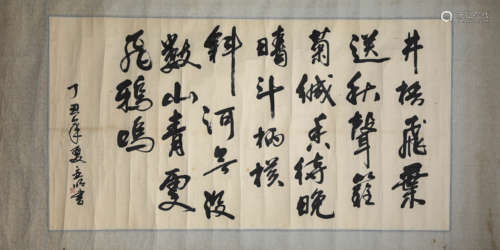 井梧飛葉
送秋聲籬
菊緘香待晚
晴斗柄橫
斜河欲沒
數山青處
亂鴉鳴
丁丑年夏立明書